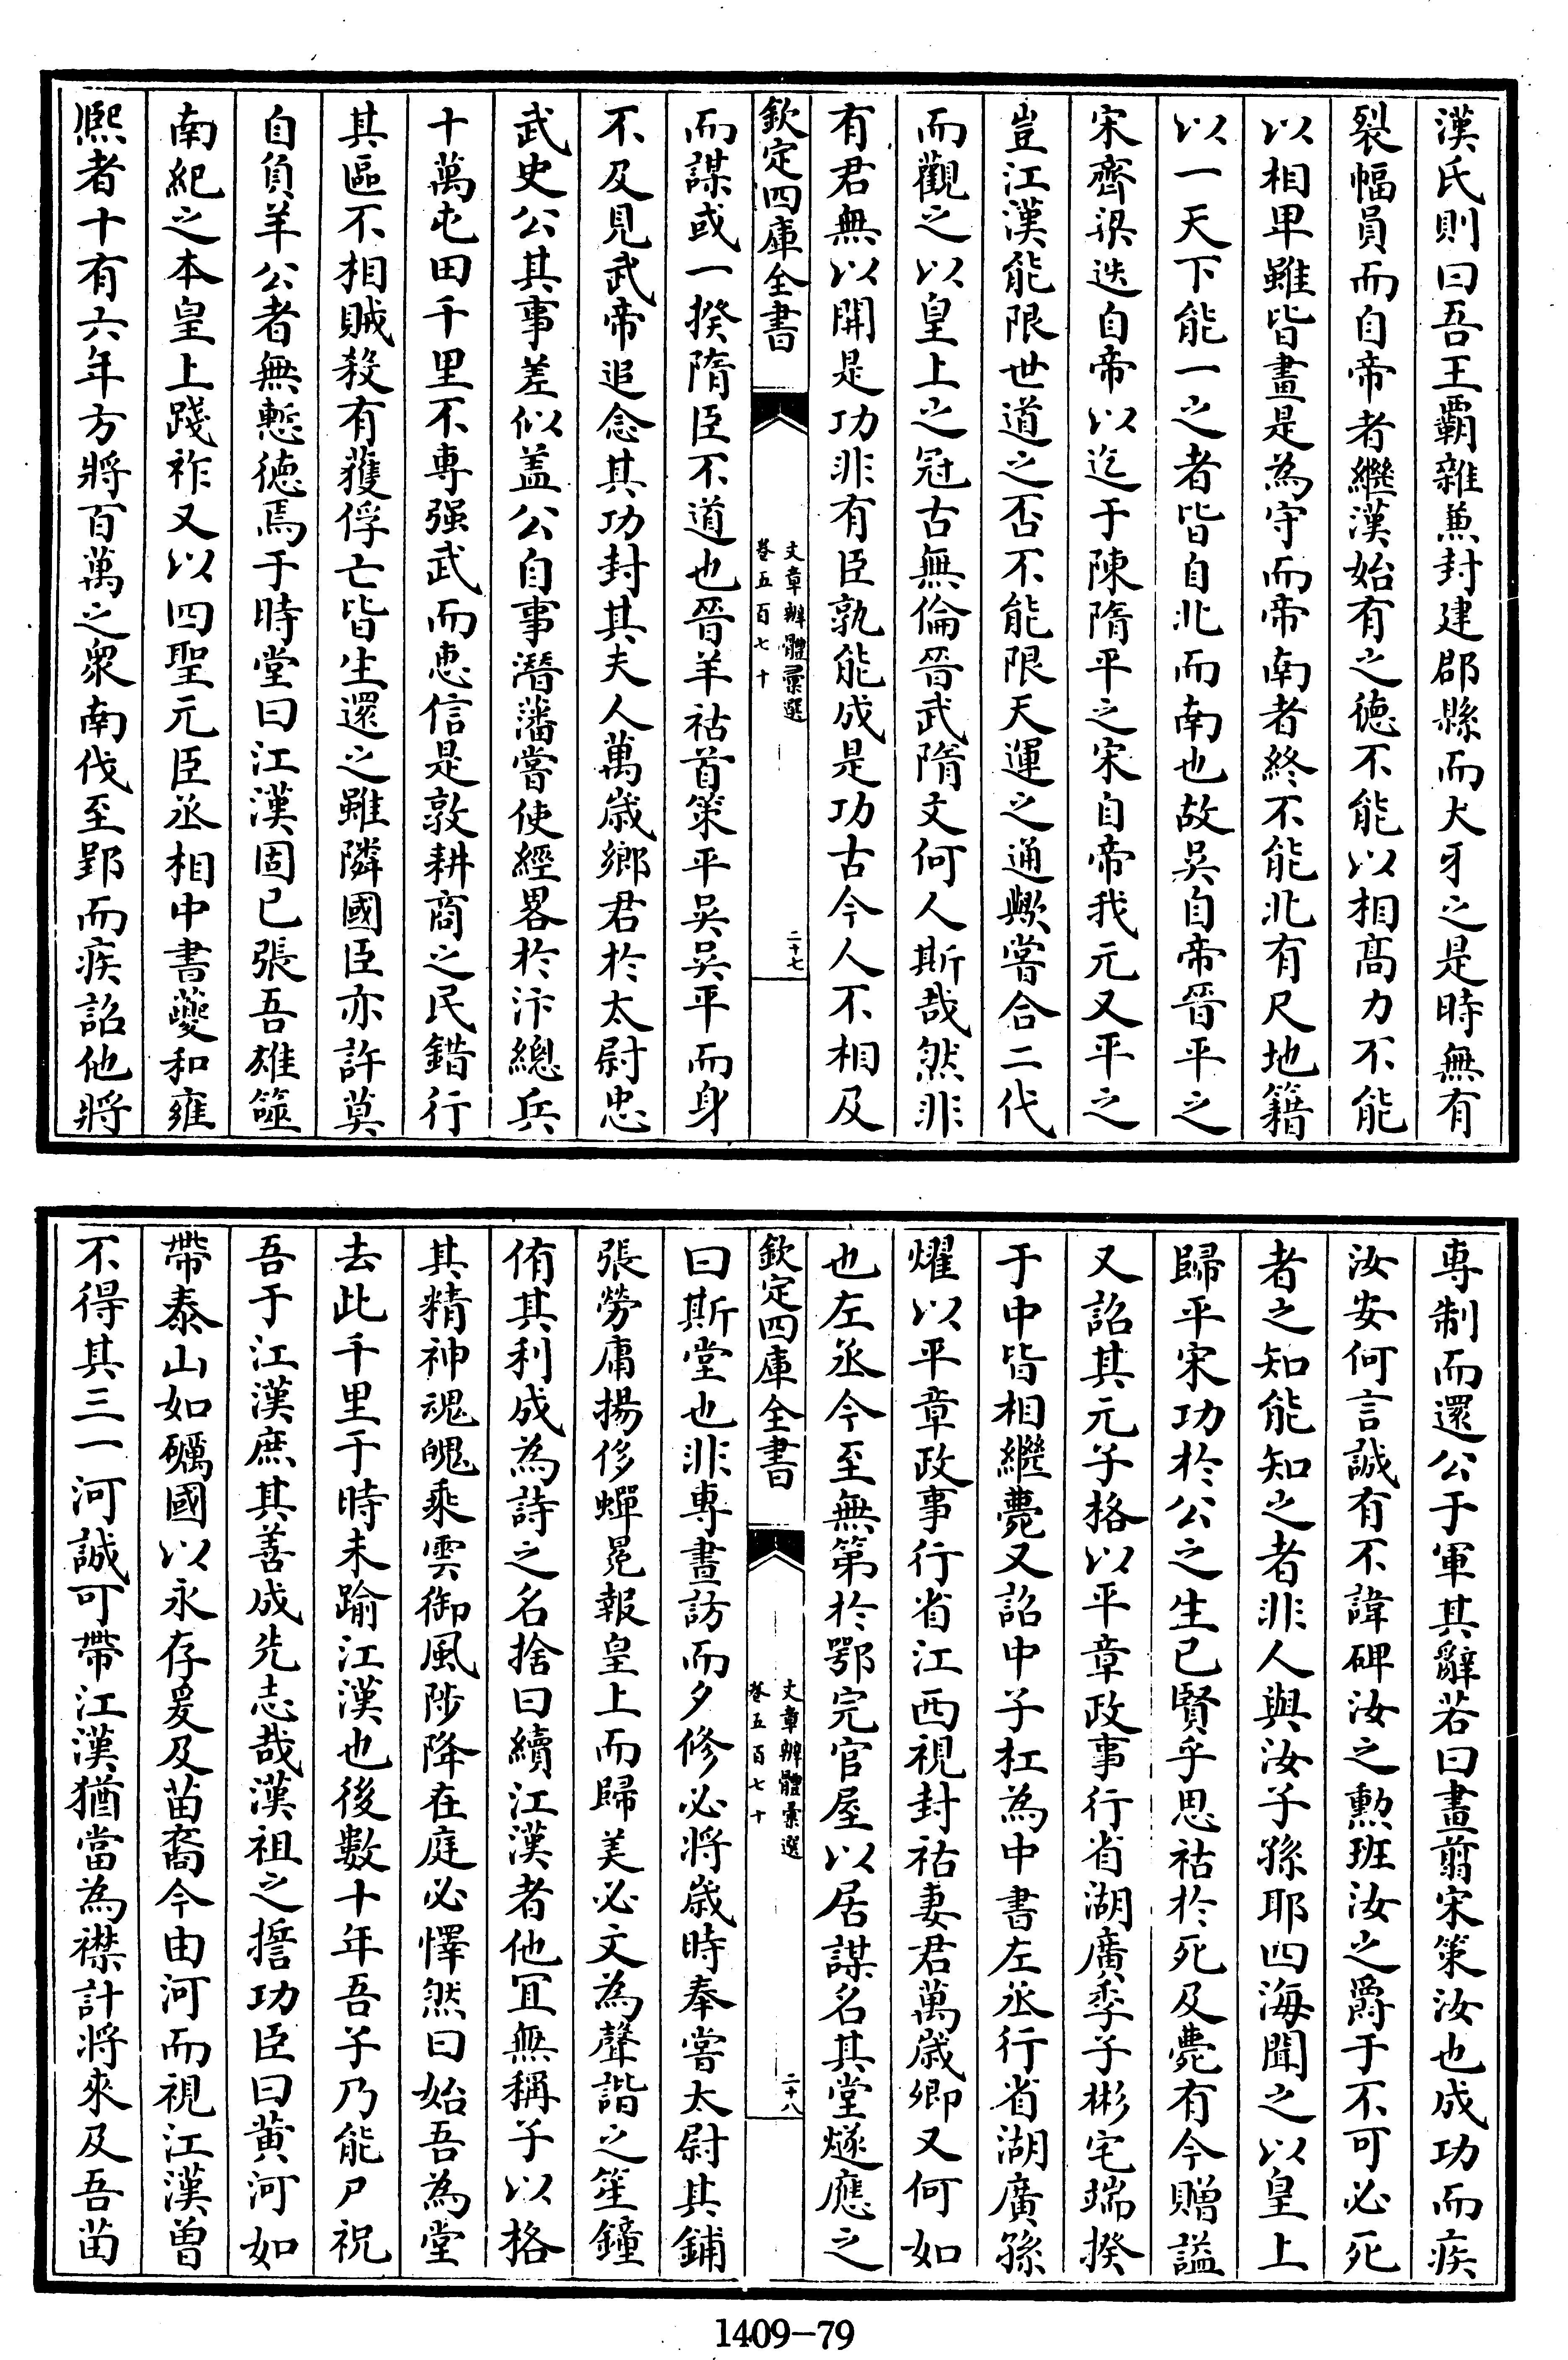 漢氏則曰吾王覇雜兼封建郡縣而犬牙之是時無有
裂幅員而自帝者繼漢始有之徳不能以相髙力不能
以相卑雖皆畫是為守而帝南者終不能北有尺地籍
以一天下能一之者皆自北而南也故吳自帝晉平之
宋齊梁迭自帝以迄于陳隋平之宋自帝我元又平之
豈江漢能限世道之否不能限天運之通歟嘗合二代
而觀之以皇上之冠古無倫晉武隋文何人斯哉然非
有君無以開是功非有臣孰能成是功古今人不相及
欽定四庫全書
文章辨體彚選
卷五百七十
二十七
而謀或一揆隋臣不道也晉羊祜首策平吳吳平而身
不及見武帝追念其功封其夫人萬歳鄉君於太尉忠
武史公其事差似盖公自事潛藩嘗使經畧於汴總兵
十萬屯田千里不専强武而恵信是敦耕商之民錯行
其區不相賊殺有獲俘亡皆生還之雖隣國臣亦許莫
自負羊公者無慙徳焉于時堂曰江漢固已張吾雄筮
南紀之本皇上踐祚又以四聖元臣丞相中書夔和雍
熈者十有六年方將百萬之衆南伐至郢而疾詔他將
専制而還公于軍其辭若曰畫翦宋策汝也成功而疾
汝安何言誠有不諱碑汝之勲班汝之爵于不可必死
者之知能知之者非人與汝子孫耶四海聞之以皇上
歸平宋功於公之生已賢乎思祜於死及薨有今贈謚
又詔其元子格以平章政事行省湖廣季子彬宅端揆
于中皆相繼薨又詔中子杠為中書左丞行省湖廣孫
燿以平章政事行省江西視封祜妻君萬歲卿又何如
也左丞今至無第於鄂完官屋以居謀名其堂燧應之
欽定四庫全書
文章辨體彚選
卷五百七十
二十八
曰斯堂也非専晝訪而夕修必将歳時奉嘗太尉其鋪
張勞庸揚侈蟬冕報皇上而歸美必文為聲諧之笙鐘
侑其利成為詩之名捨曰續江漢者他冝無稱子以格
其精神魂魄乘雲御風陟降在庭必懌然曰始吾為堂
去此千里于時未踰江漢也後數十年吾子乃能尸祝
吾于江漢庶其善成先志哉漢祖之誓功臣曰黄河如
帶泰山如礪國以永存爰及苗裔今由河而視江漢曾
不得其三一河誠可帶江漢猶當為襟計將來及吾苗
1409-79